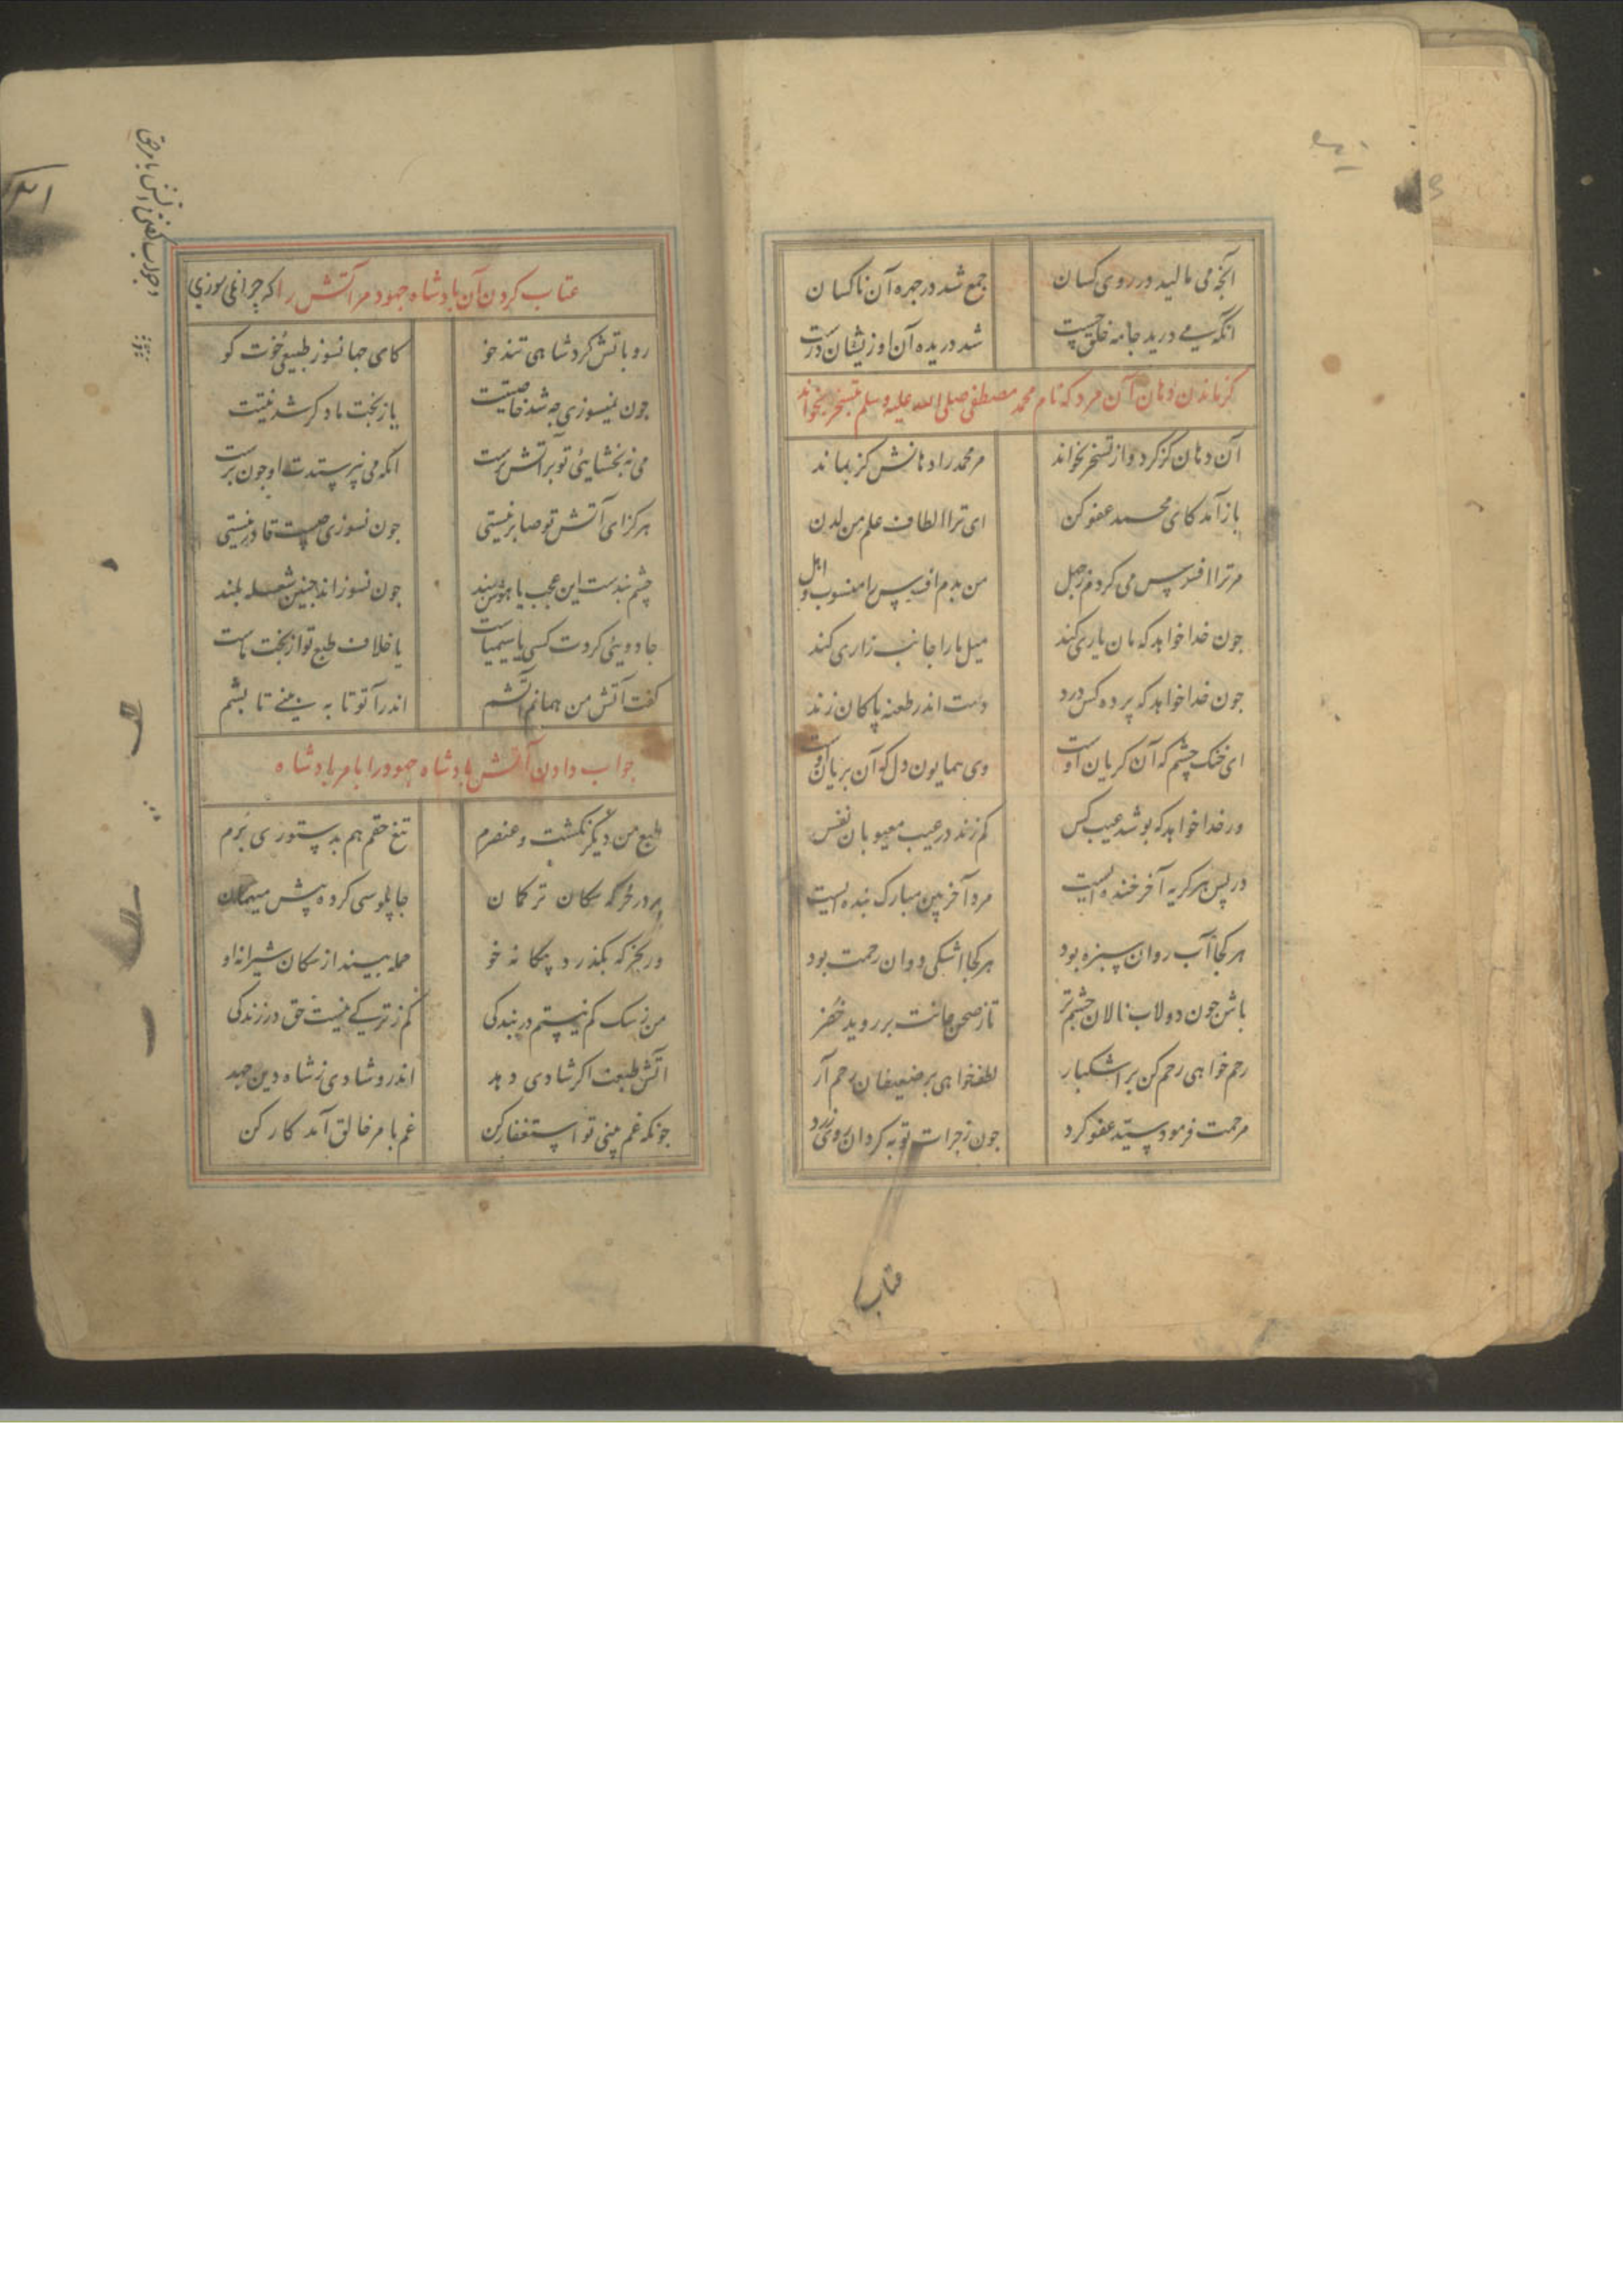 آنچه می مالید در روی کسان جمع شد در جهره آن ناکسان
انکه می درید جامه خلق چست شد دریده آن او زیشان درست
کژ ماندن دهان آن مرد که نام محمد مصطفی صلی الله علیه وسلم بتسخر بخواند
آن دهان کژ کرد و از تسخر بخواند مر محمد را دهانش کژ بماند
باز آمد کای محمد عفو کن ای ترا الطاف علم من لدن
مر ترا افسوس می کردم ز جهل من بدم افسوس را منسوب و اهل
جون خدا خواهد که مان یاری کند میل ما را جانب زاری کند
جون خدا خواهد که پرده کس درد میلش اندر طعنه پاکان زند
ای خنک چشمی که آن کریان اوست وی همایون دل که آن بریان اوست
ور خدا خواهد که پوشد عیب کس کم زند در عیب معیوبان نفس
در پس هر کریه آخر خنده ایست مرد آخر بین مبارک بنده ایست
هر کجا آب روان سبزه بود هر کجا اشکی دوان رحمت بود
باش جون دولاب نالان چشم تر تا ز صحن جانت بر روید خضر
رحم خواهی رحم کن بر اشکبار لطف خواهی بر ضعیفان رحم آر
مرحمت فرمود سید عفو کرد جون ز جرات توبه کرد آن روی زرد
عتاب
عتاب کردن آن بادشاه جهود مر آتش را که چرا نمی سوزی
رو باتش کرد شاهی تند خو کای جهانسوز طبیعی خوت کو
جون نمیسوزی چه شد خاصیتت یا ز بخت ما دکر شد نیتت
می نه بخشایی تو بر آتش پرست انکه می نپرستدت او جون برست
هرکز ای آتش تو صابر نیستی جون نسوزی چیست قادر نیستی
چشم بندست این عجب یا هوش بند جون نسوزاند چنین شعله بلند
جادویی کردت کسی یا سیمیاست یا خلاف طبع تو از بخت ماست
کفت آتش من همانم آتشم اندر آ تو تا به بینی تابشم
جواب دادن آتش بادشاه جهود را بامر بادشاه
طبع من دیکر نکشت و عنصرم تیغ حقم هم بدستوری برم
بر در خرکه سکان ترکمان چاپلوسی کرده پیش میهمان
ور بخرکه بکذرد بیکانه خو حمله بیند از سکان شیرانه او
من ز سک کم نیستم در بندکی کم ز ترکی نیست حق در زندکی
آتش طبعت اکر شادی دهد اندرو شادی ز شاه دین جهد
جونکه غم بینی تو استغفار کن غم بامر خالق آمد کار کن